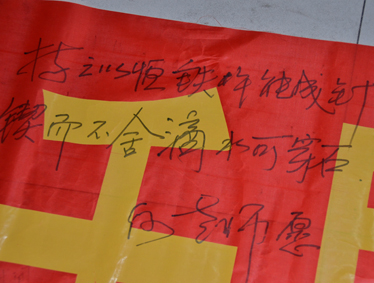 持之以恒铁杵能成针
锲而不舍滴水可穿石
何老师愿